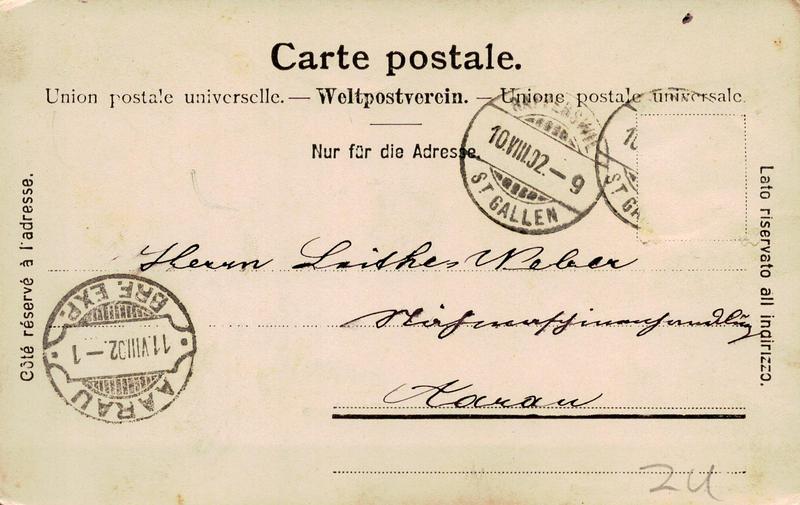 Carte postale.
Union postale universelle. — Weltpostverein. — Unione postale universale.
Nur für die Adresse.
10.VIII.02.—9
ST GALLEN
10
ST GA
Côté réservé à l'adresse.
Lato riservato all indirizzo.
Herrn Weber
Nähmaschinenhandlung
Aarau
BRF. EXP.
11.VIII.02.—1
AARAU
ZU